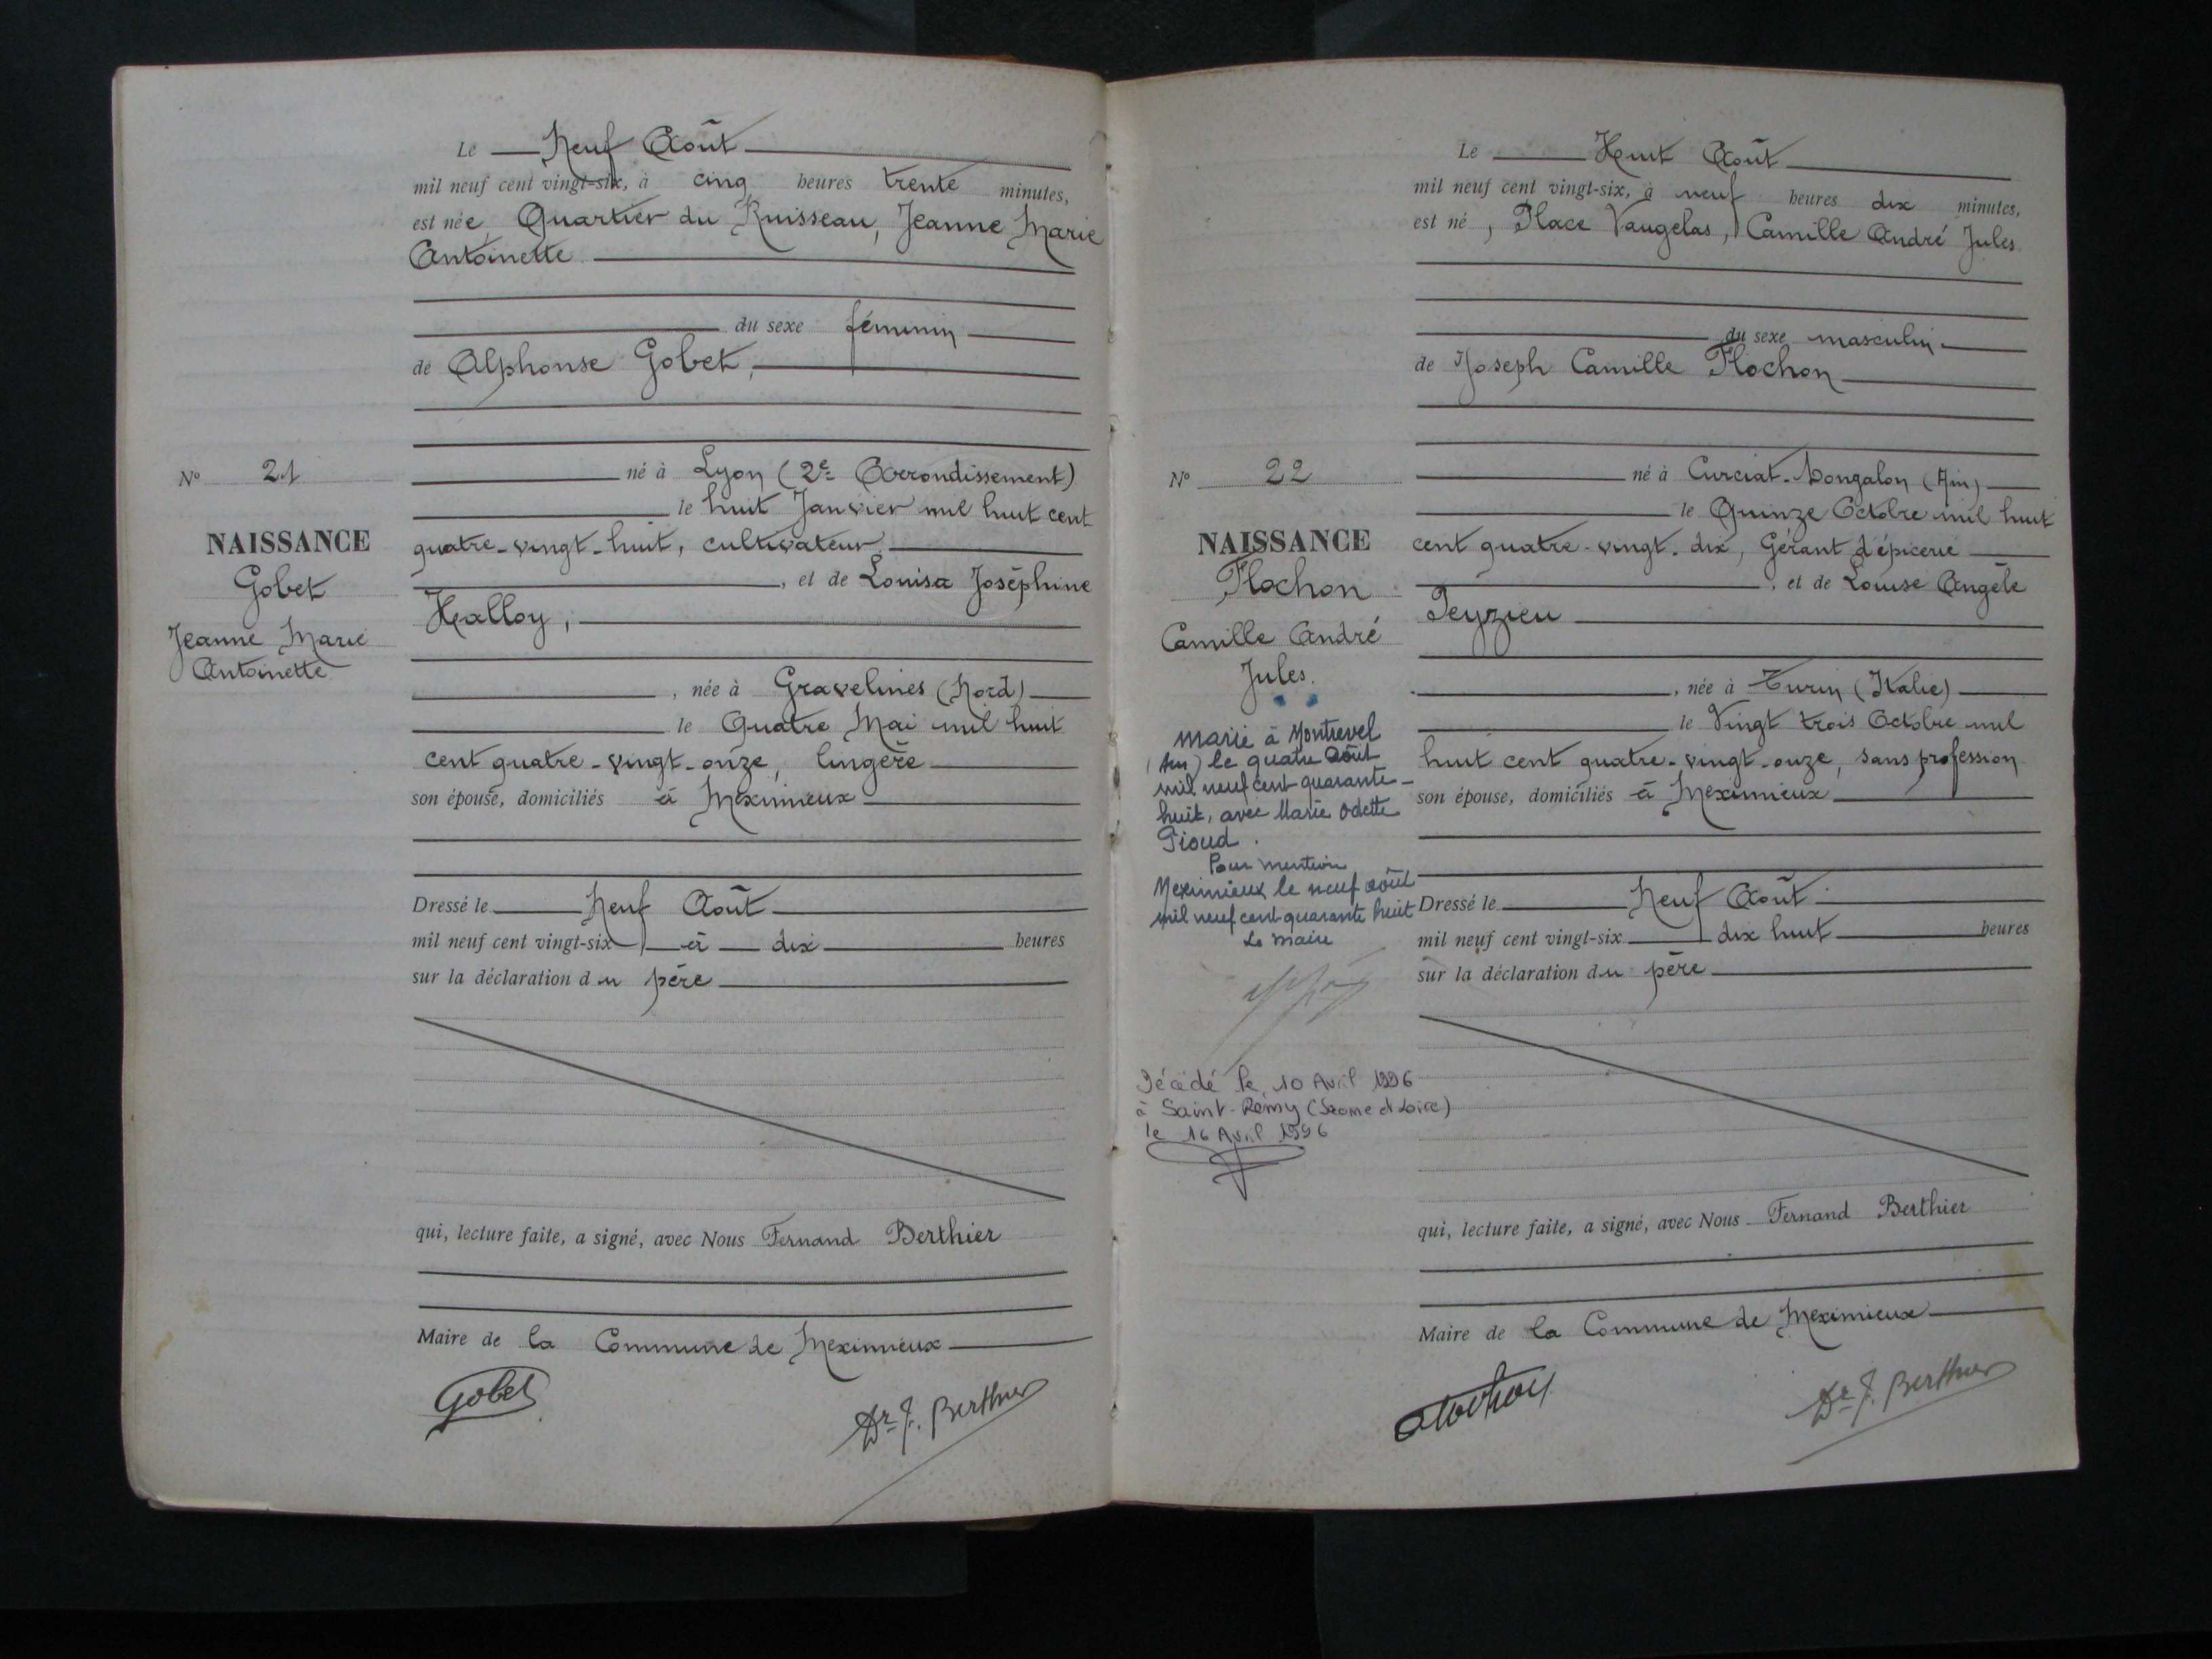 Le Neuf Août
mil neuf cent vingt-six, à cinq heures trente minutes,
est née, Quartier du Ruisseau, Jeanne Marie
Antoinette
du sexe féminin
de Alphonse Gobet,
né à Lyon (2e Arrondissement)
le huit Janvier mil huit cent
quatre-vingt-huit, cultivateur
, et de Louisa Joséphine
Halloy,
, née à Gravelines (Nord)
le Quatre Mai mil huit
cent quatre-vingt-onze, lingère
son épouse, domiciliés à Meximieux
Dressé le Neuf Août
mil neuf cent vingt-six à dix heures
sur la déclaration du père
qui, lecture faite, a signé, avec Nous Fernand Berthier
Maire de la Commune de Meximieux
Gobet
Dr F. Berthier
No 21
NAISSANCE
Gobet
Jeanne Marie
Antoinette
Le Huit Août
mil neuf cent vingt-six, à neuf heures dix minutes,
est né, Place Vaugelas, Camille André Jules
du sexe masculin
de Joseph Camille Flochon
né à Curciat-Dongalon (Ain)
le Quinze Octobre mil huit
cent quatre-vingt-dix, Gérant d'épicerie
, et de Louise Angèle
Peyzieu
, née à Turin (Italie)
le Vingt trois Octobre mil
huit cent quatre-vingt-onze, sans profession
son épouse, domiciliés à Meximieux
Dressé le Neuf Août
mil neuf cent vingt-six dix huit heures
sur la déclaration du père
qui, lecture faite, a signé, avec Nous Fernand Berthier
Maire de la Commune de Meximieux
Flochon
Dr F. Berthier
No 22
NAISSANCE
Flochon
Camille André
Jules.
marié à Montrevel
(Ain) le quatre Août
mil neuf cent quarante-
huit, avec Marie Odette
Pioud.
Pour mention
Meximieux le neuf août
mil neuf cent quarante huit
Le maire
Décédé le 10 Avril 1996
à Saint-Rémy (Saone et Loire)
le 16 Avril 1996